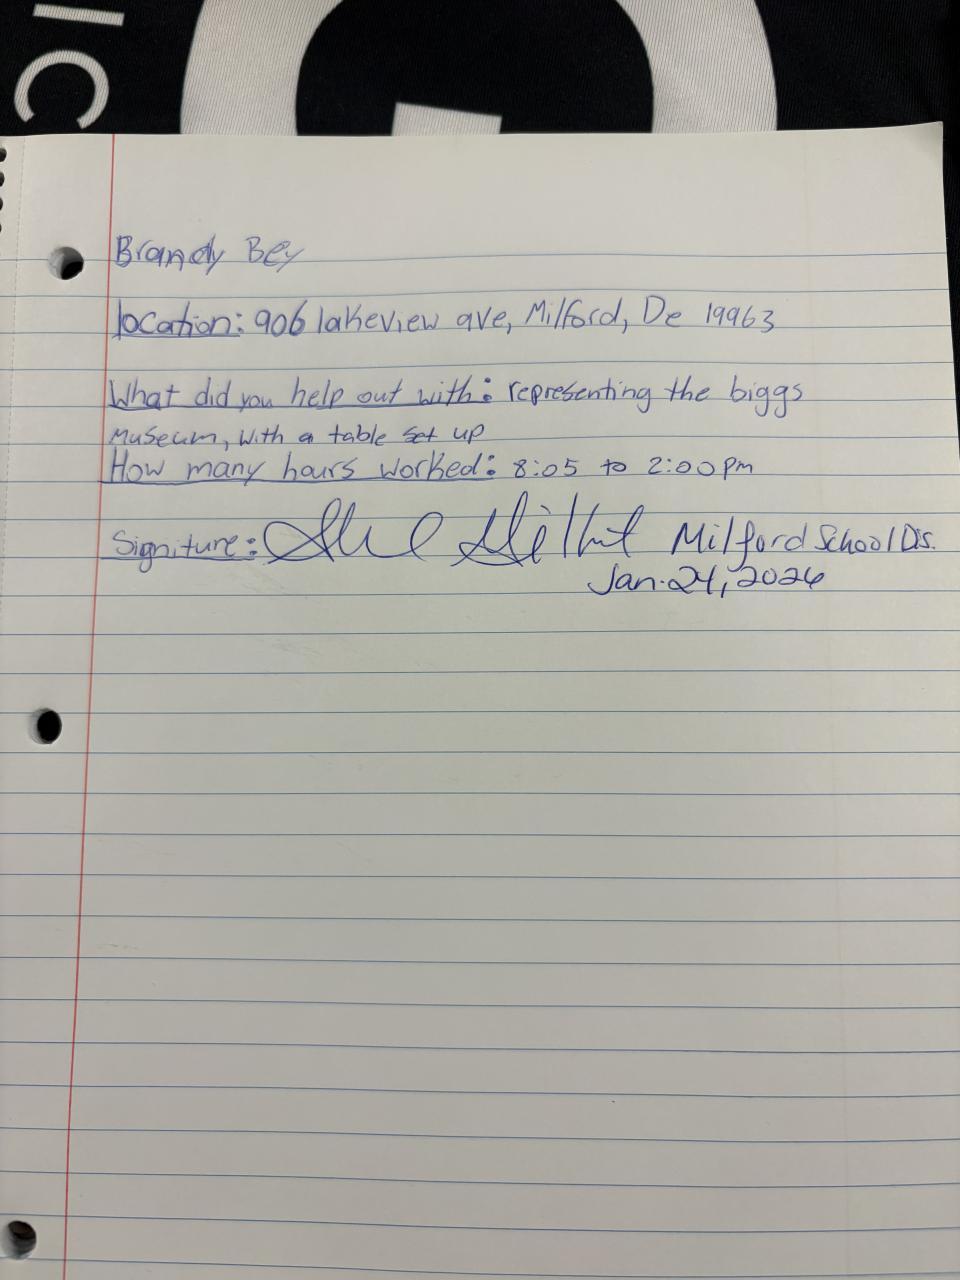 IC
Brandy Bey
location: 906 lakeview ave, Milford, De 19963
What did you help out with: representing the biggs
Museum, with a table set up
How many hours worked: 8:05 to 2:00 pm
Signiture: Milford School Dis.
Jan. 24, 2026